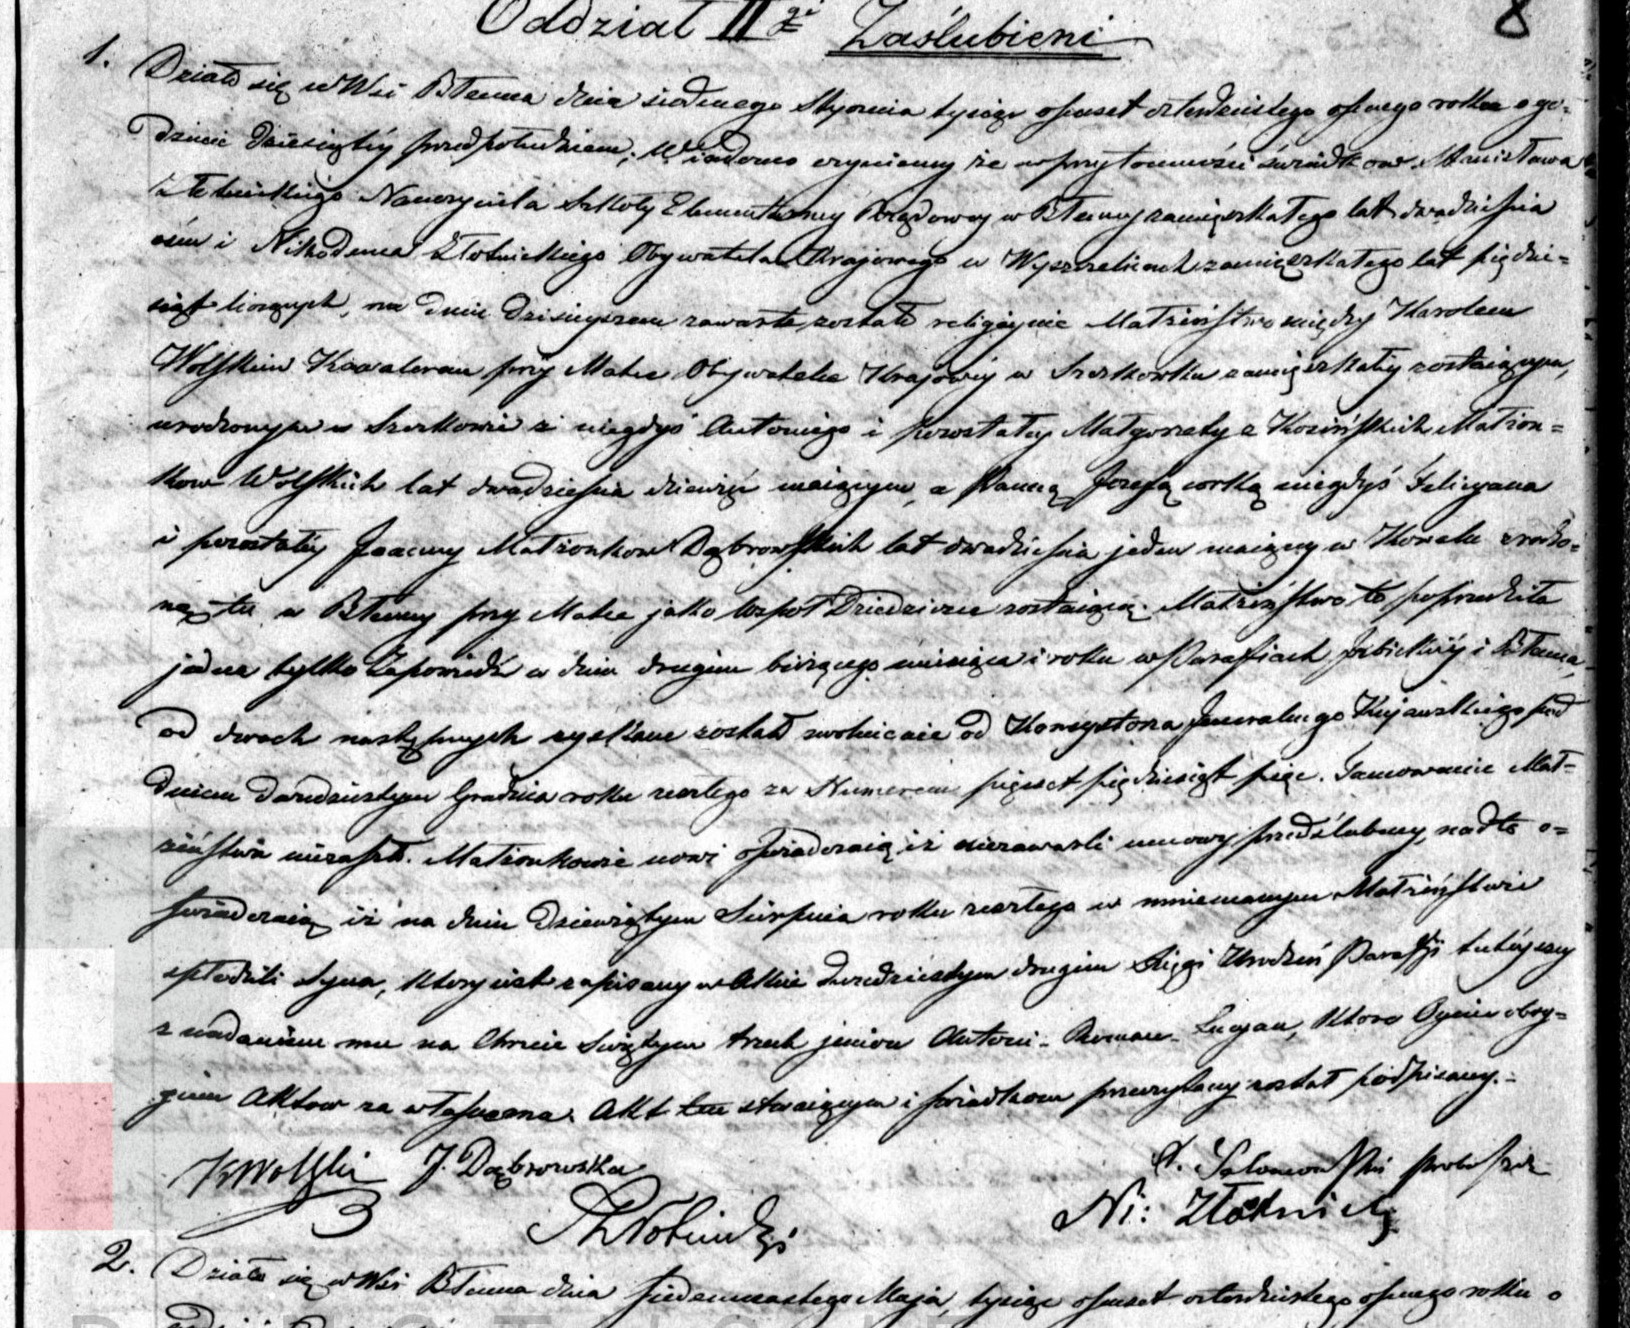 Oddział II gi Zaślubieni
8
1. Działo się w Wsi Błenna dnia siódmego Stycznia tysiąc ośmset czterdziestego ósmego roku o go=
dzinie dziesiątéy przedpołudniem; Wiadomo czyniemy że w przytomności świadków Stanisława
Nauczyciela Szkoły Elementarney Rządowey w Błenny zamięszkałego lat dwadzieścia
ośm i Nikodema Złotnickiego Obywatela Krajowego w zamięszkałego lat pięćdzie=
siąt liczących, na dniu dzisieyszem zawarte zostało religiynie Małżeństwo między Karolem
Wolskim Kawalerem przy Matce Obywatelce Krajowéy w Szczkowku zamięszkałéy zostaiącym,
urodzonym w Szczkowie z niegdyś Antoniego i pozostałey Małgorzaty z Kosińskich Małżon=
ków Wolskich lat dwadzieścia dziewięć maiącym, a Panną Józefą córką niegdyś Felicyana
i pozostałéy Joanny Małżonków Dąbrowskich lat dwadzieścia jeden maiącą w Kowalu zrodzo=
ną tu w Błenny przy Matce jako współ Dziedziczce zostaiącą. Małżeństwo to poprzedziła
jedna tylko Zapowiedź w dniu drugim bieżącego miesiąca i roku w Parafiach Izbickiéy i Błenna,
od dwóch następnych zyskane został uwolnienie od Konsystorza Jeneralnego Kujawskiego pod
dniem dwudziestym Grudnia roku zeszłego za Numerem pięćset pięćdziesiąt pięć. Tamowanie Mał=
żeństwa niezaszło. Małżonkowie nowi oświadczaią iż niezawarli umowy przedślubney, nadto o=
świadczaią iż na dniu dziewiątym Sierpnia roku zeszłego w mniemanym Małżeństwie
spłodzili Syna, który iest zapisany w Akcie dwudziestym drugim Księgi Urodzeń Parafji tutéyszey
z nadaniem mu na Chrzcie Świętym trzech jmion Antoni- Roman- Lucyan, którego Oycem obey=
Aktów za własnego. Akt ten stawaiącym i świadkom przeczytany został podpisany.=
K Wolski J. Dąbrowska
Salomoński proboszcz
Ni: Złotnicki
2. Działo się w Wsi Błenna dnia siedemnastego Maja, tysiąc ośmset czterdziestego ósmego roku o